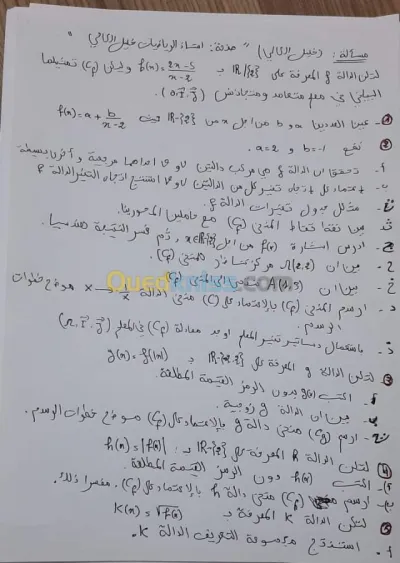 مسألة: (دخيل الغالي) "هدية: أستاذ الرياضيات دخيل الغالي"
لتكن الدالة f المعرفة على R/{2} بـ f(x) = 2x-5/x-2 وليكن (Cf) تمثيلها
البياني في معلم متعامد ومتجانس (o,i,j).
① عين العددين a و b من أجل x من R-{2} حيث f(x) = a + b/x-2
② نضع a = 2 و b = -1
أ- تحقق أن الدالة f هي مركب دالتين u و v إحداهما مرجعية و أخرى بسيطة
ب- اعتمادا على اتجاه تغير كل من الدالتين u و v استنتج اتجاه تغير الدالة f
مثل جدول تغيرات الدالة f.
ث- عين نقط تقاطع المنحنى (Cf) مع حاملي المحورين.
ج- ادرس إشارة f(x) من أجل x∈R-{2}، ثم فسر النتيجة هندسيا.
ح- بين أن Ω(2,2) مركز تناظر للمنحنى (Cf).
خ- بين أن A(1,3) إلى المنحنى (Cf)
د- ارسم المنحنى (Cf) بالاعتماد على (C) منحنى الدالة x→1/x موضح خطوات
الرسم.
ذ- باستعمال دساتير تغيير المعلم أوجد معادلة (Cf) في المعلم (Ω,i,j)
③ لتكن الدالة g المعرفة على R-{-2,2} بـ g(x) = f(|x|)
أ- اكتب g(x) بدون الرمز القيمة المطلقة.
ب- بين أن الدالة g زوجية.
ارسم (Cg) منحنى دالة g بالاعتماد على (Cf) موضح خطوات الرسم.
④ لتكن الدالة h المعرفة على R-{2} بـ: h(x) = |f(x)|
أ- اكتب h(x) دون الرمز القيمة المطلقة.
ب- ارسم منحنى دالة h بالاعتماد على (Cf)، مفسرا ذلك.
⑤ لتكن الدالة K المعرفة بـ K(x) = √f(x)
أ- استنتج مجموعة التعريف الدالة K.